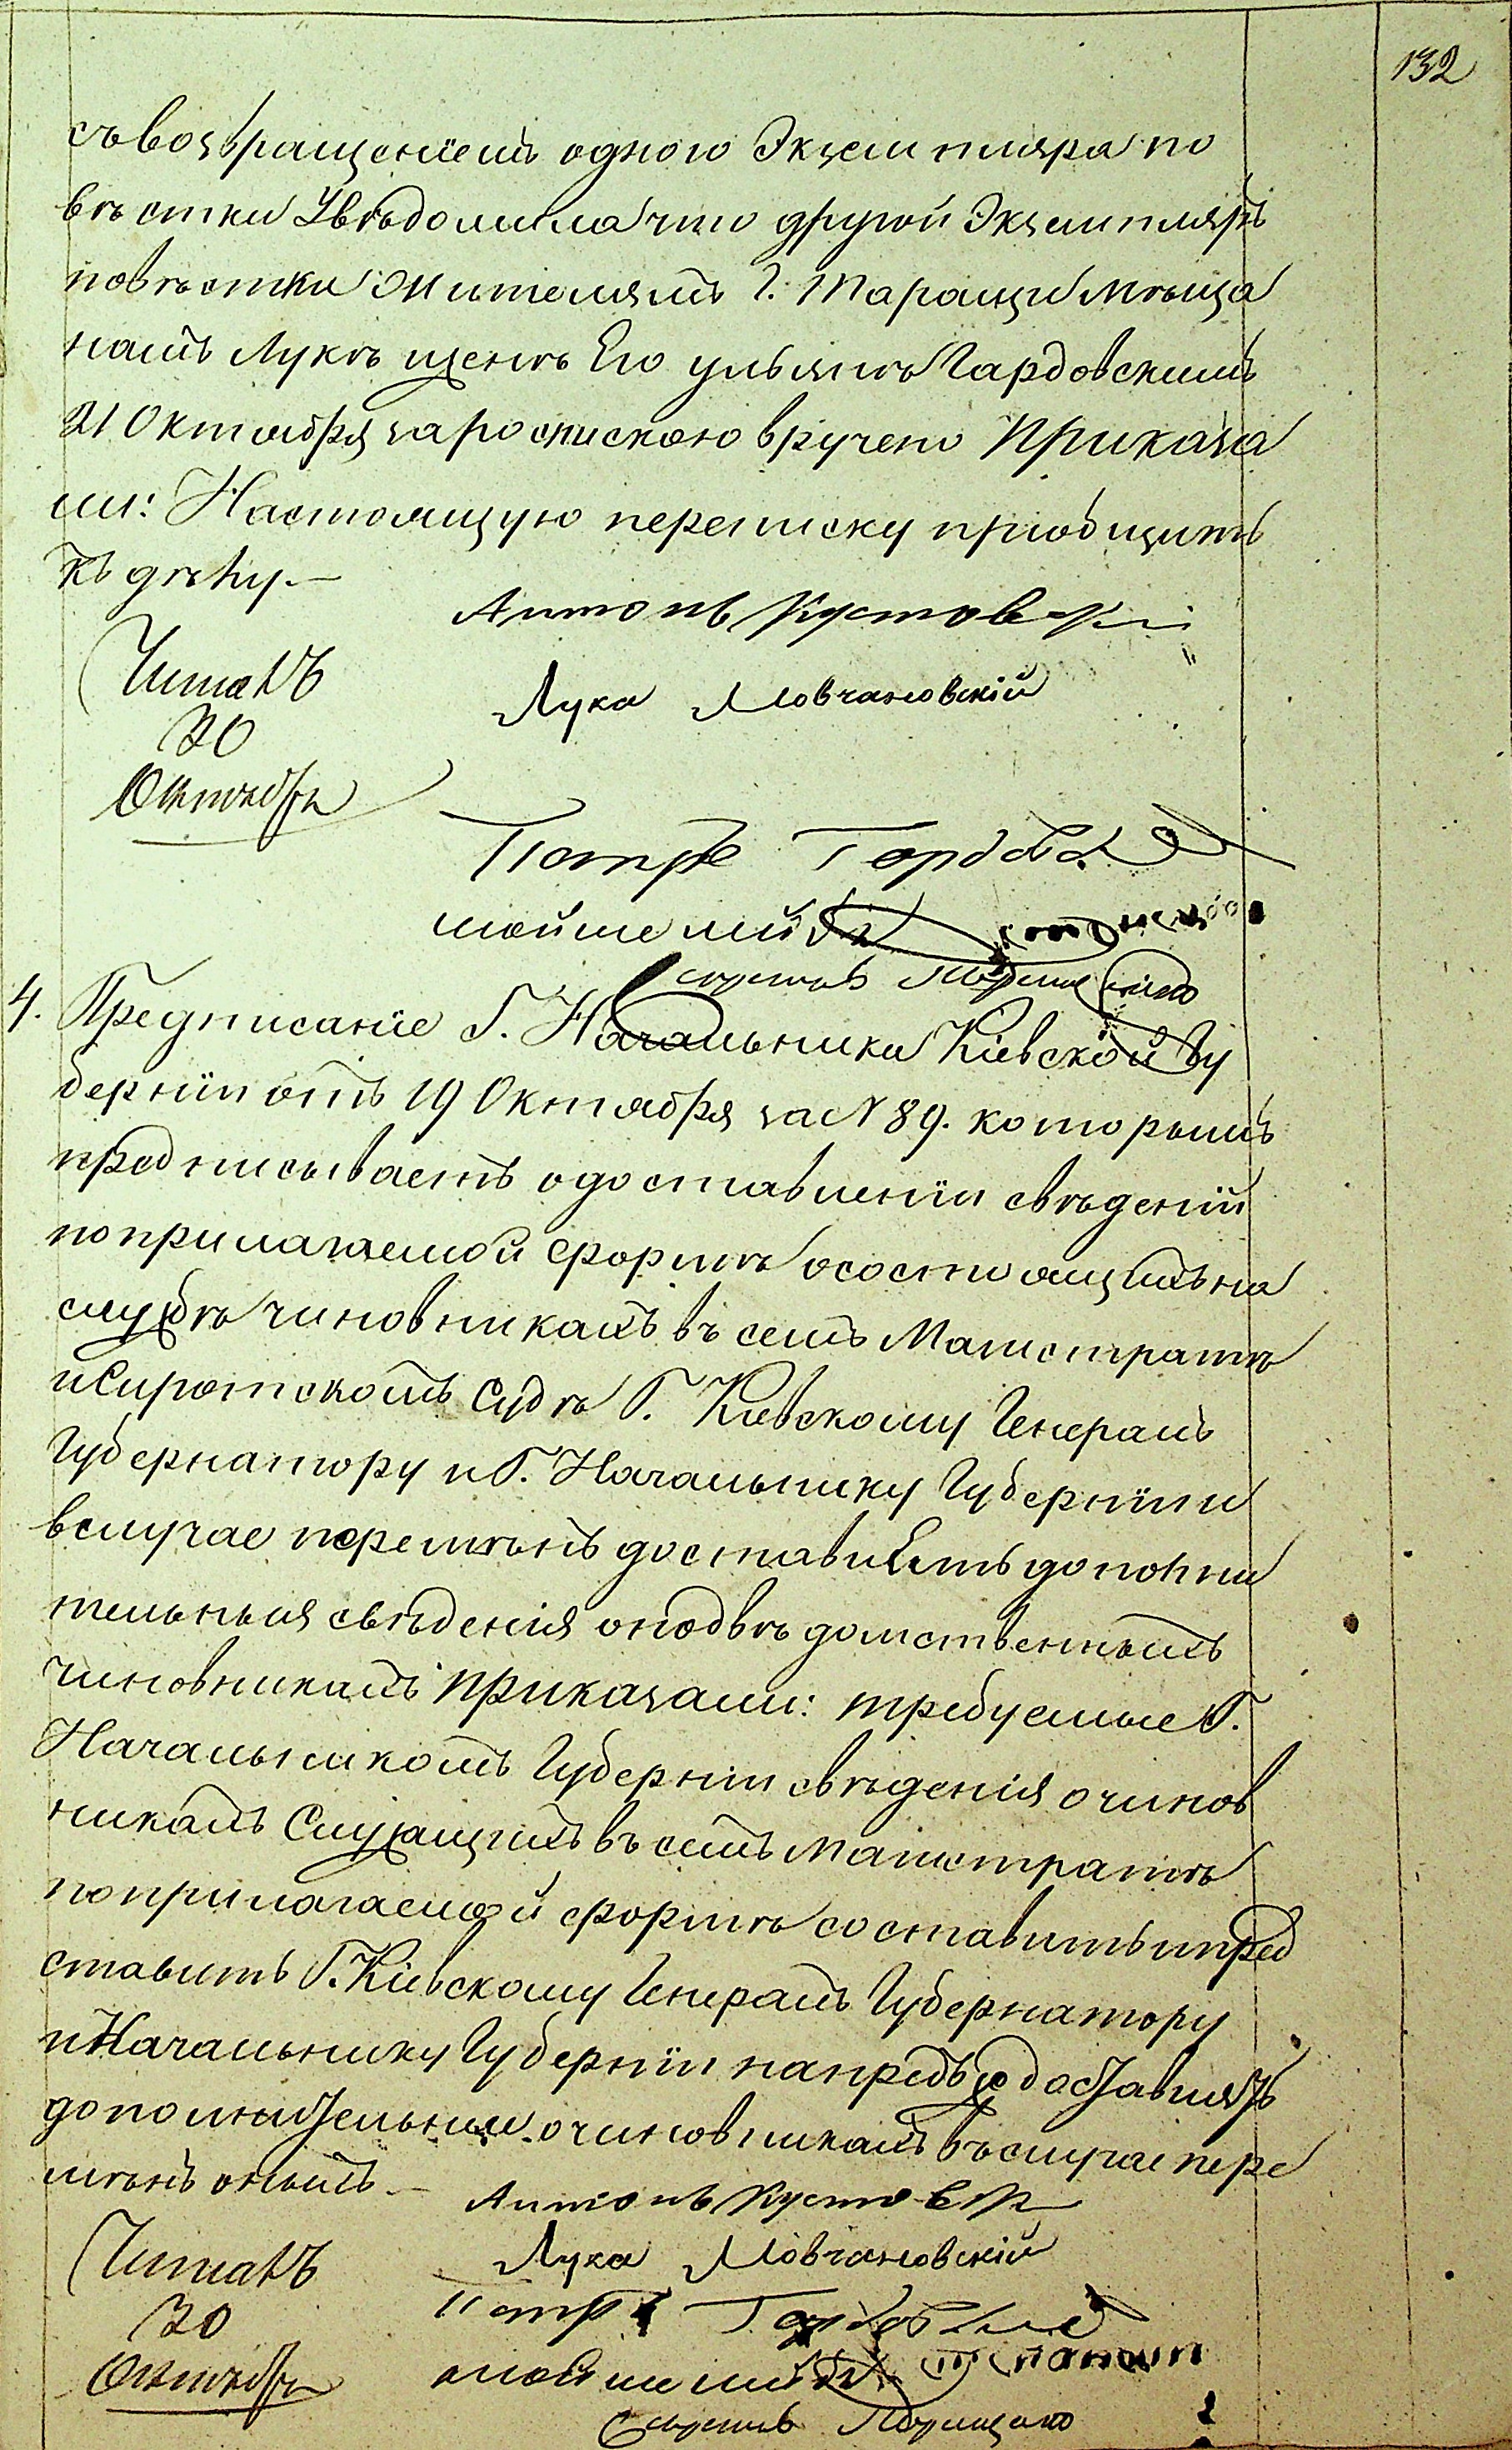 132
съ возвращеніемъ одного Экземпляра по
въстки Увѣдомила что другой Экземпляръ
повѣстки Жителямъ г. Таращи Мѣща
намъ Лукѣ и женѣ Его ульянѣ Гардовскимъ
21 Октября за роспискою вручено Приказа
ли: Настоящую переписку приобщить
къ дѣлу.—
Антонъ Кустовскі
Читалъ
Лука Мовчановскій
20
Октября
Петръ
4. Предписаніе Г. Начальника Кіевской Гу
берніи отъ 19 Октября за N 89. которымъ
предписываетъ о доставленіи свѣденій
по прилагаемой формѣ о состоящихъ на
службѣ чиновникахъ въ семъ Магистратѣ
и Сиротскомъ Судѣ Г. Кіевскому Генералъ
Губернатору и Г. Начальнику Губерніи и
в случае перемѣнъ доставлять дополни
тельныя свѣденія о подвѣдомственныхъ
чиновникахъ Приказали: требуемые Г.
Начальникомъ Губерніи свѣденія о чинов
никахъ Служащихъ въ семъ Магистратѣ
по прилагаемой формѣ составить и пред
ставить Г. Кіевскому Генералъ Губернатору
и Начальнику Губерніи напредъ доставлять
дополнительныи о чиновникахъ въ случае пере
мѣнъ оныхъ.—
Антонъ Кустов
Читалъ
Лука Мовчановскій
20
Петръ
Октября